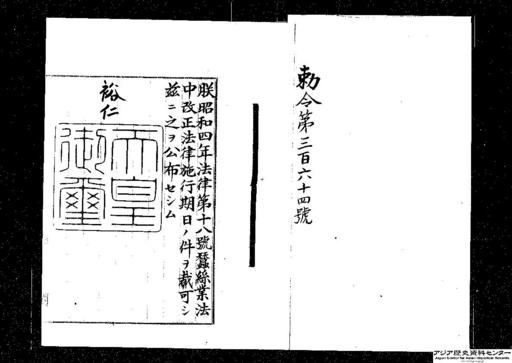 勅令第三百六十四號
朕昭和四年法律第十八號蠶絲業法
中改正法律施行期日ノ件ヲ裁可シ
茲ニ之ヲ公布セシム
裕仁
天皇
御璽
アジア歴史資料センター
Japan Center for Asian Historical Records